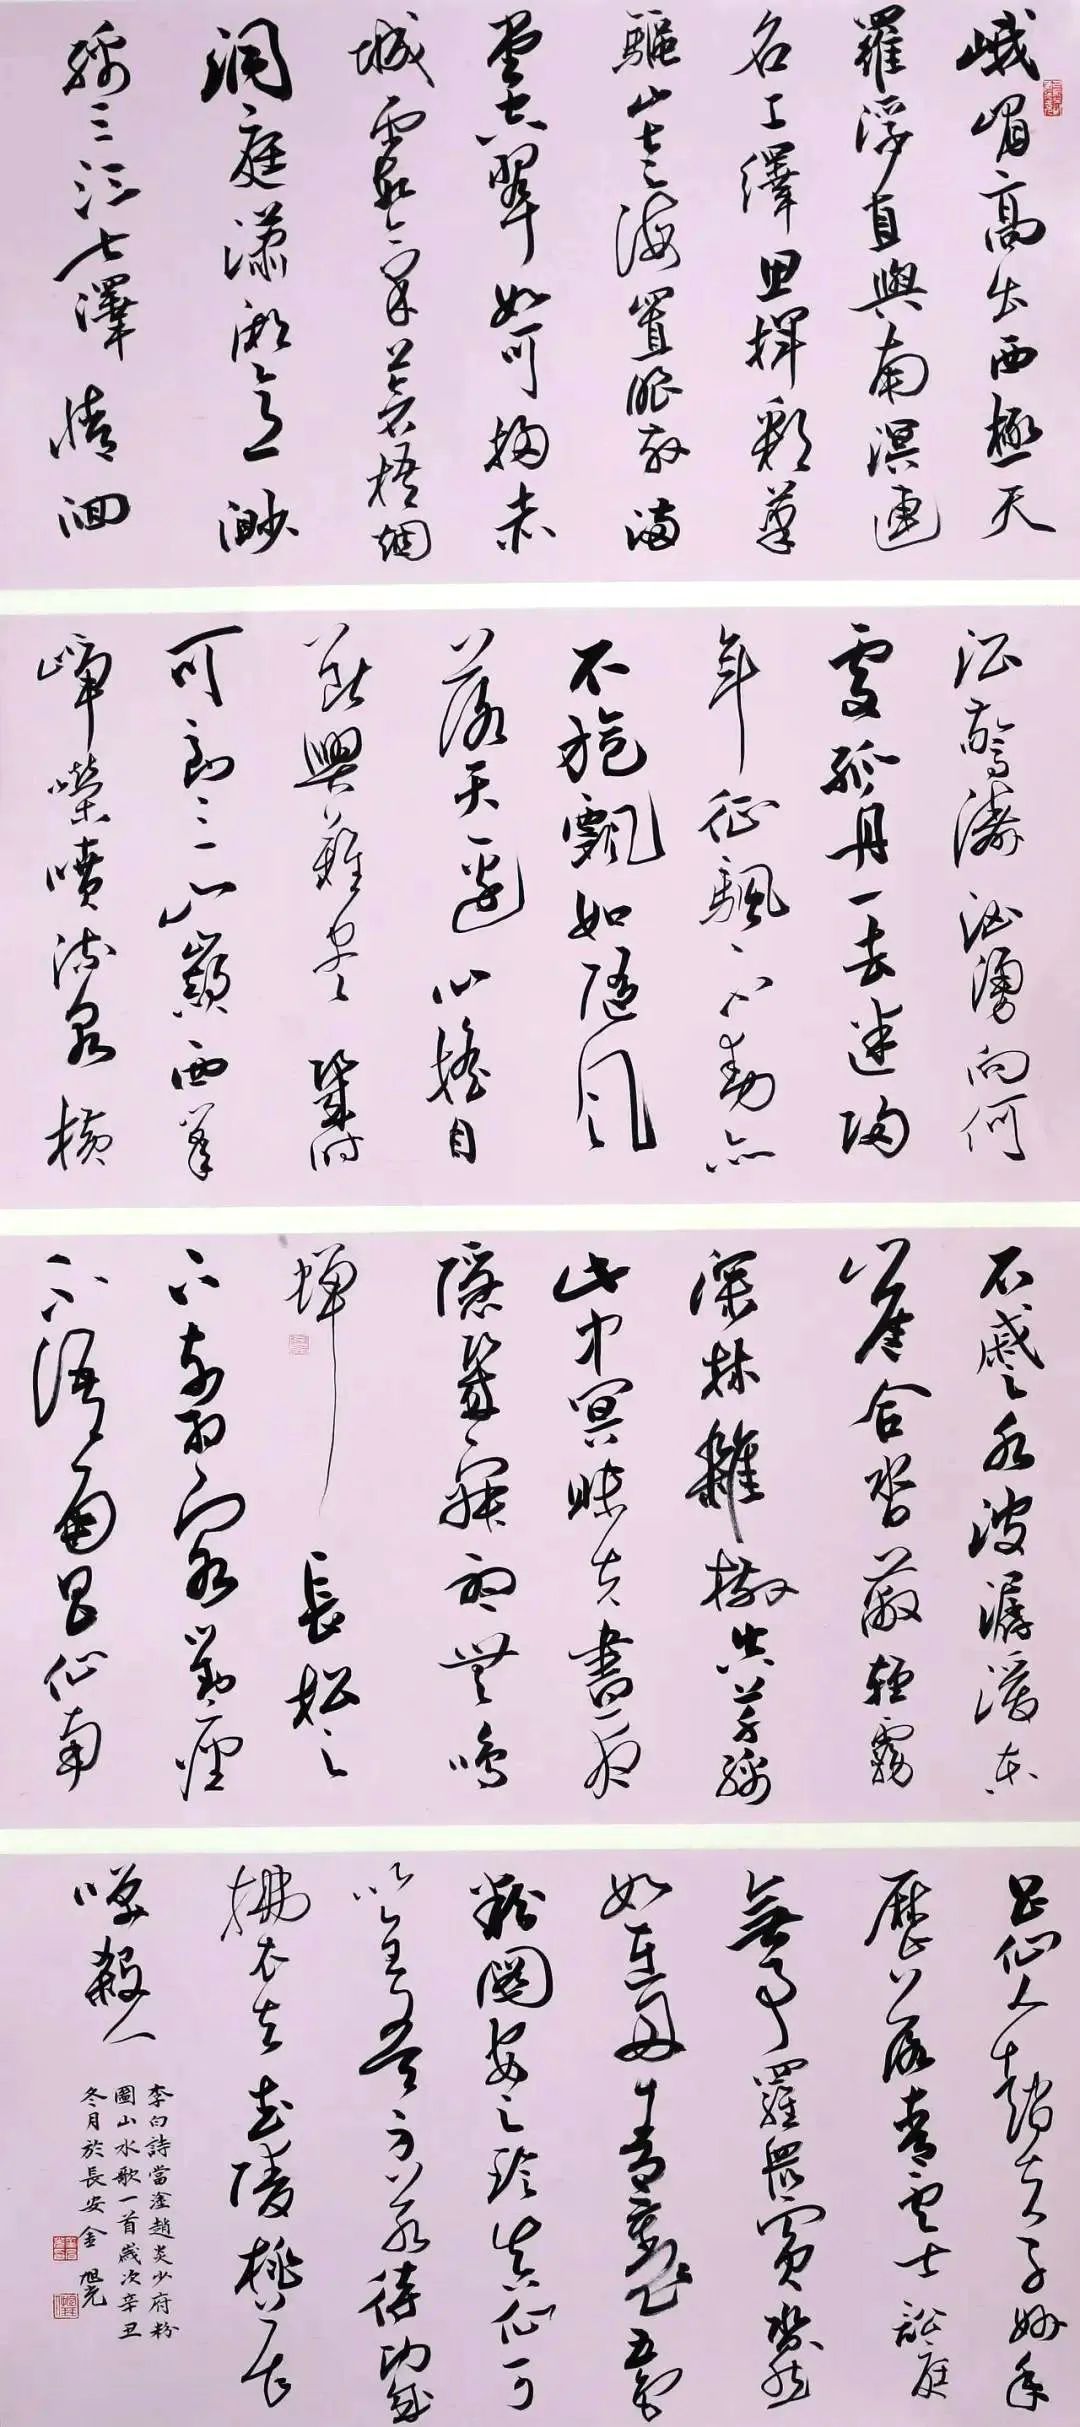 峨嵋高出西極天
羅浮直與南溟連
名工繹思揮彩筆
驅山走海置眼前滿
堂空翠如可掃赤
城霞氣蒼梧烟
洞庭瀟湘意渺
綿三江七澤情洄
沿驚濤洶湧向何
處孤舟一去迷歸
年征颿不動亦
不旋飄如隨風
落天邊心搖目
斷興難盡幾時
可到三山巔西峯
崢嶸噴流泉橫
石蹙水波潺湲東
崖合沓蔽輕霧
深林雜樹空芊綿
此中冥昧失晝夜
隱几寂聽無鳴
蟬長松之
下列羽客對坐
不語南昌仙南
昌仙人趙夫子妙年
歷落青雲士訟庭
無事羅眾賓杳然
如在丹青裏五色
粉圖安足珍真仙可
以全吾身若待功成
拂衣去武陵桃花
咲殺人
李白詩當塗趙炎少府粉
圖山水歌一首歲次辛丑
冬月於長安金旭光